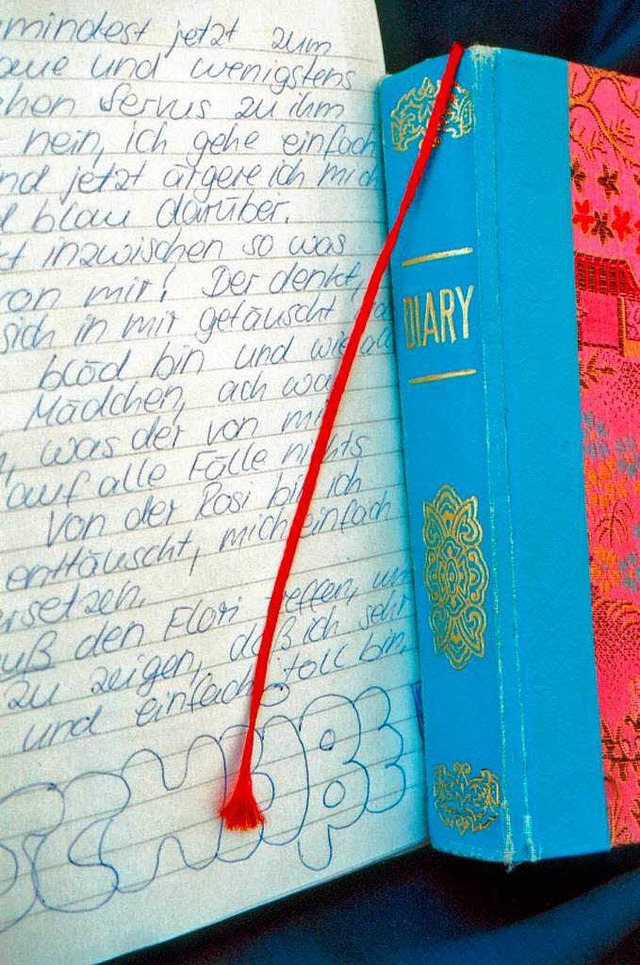 mindest jetzt zum
und wenigstens
Servus zu ihm
nein, ich gehe einfach
nd jetzt ärgere ich mich
blau darüber.
inzwischen so was
von mir! Der denkt,
sich in mir getäuscht
blöd bin und wie
Mädchen, ach was
, was der von mir
auf alle Fälle nichts
Von der Rosi bin ich
enttäuscht, mich einfach
ersetzen.
uß den Flori treffen, um
zu zeigen, daß ich sehr
und einfach toll bin.
DIARY